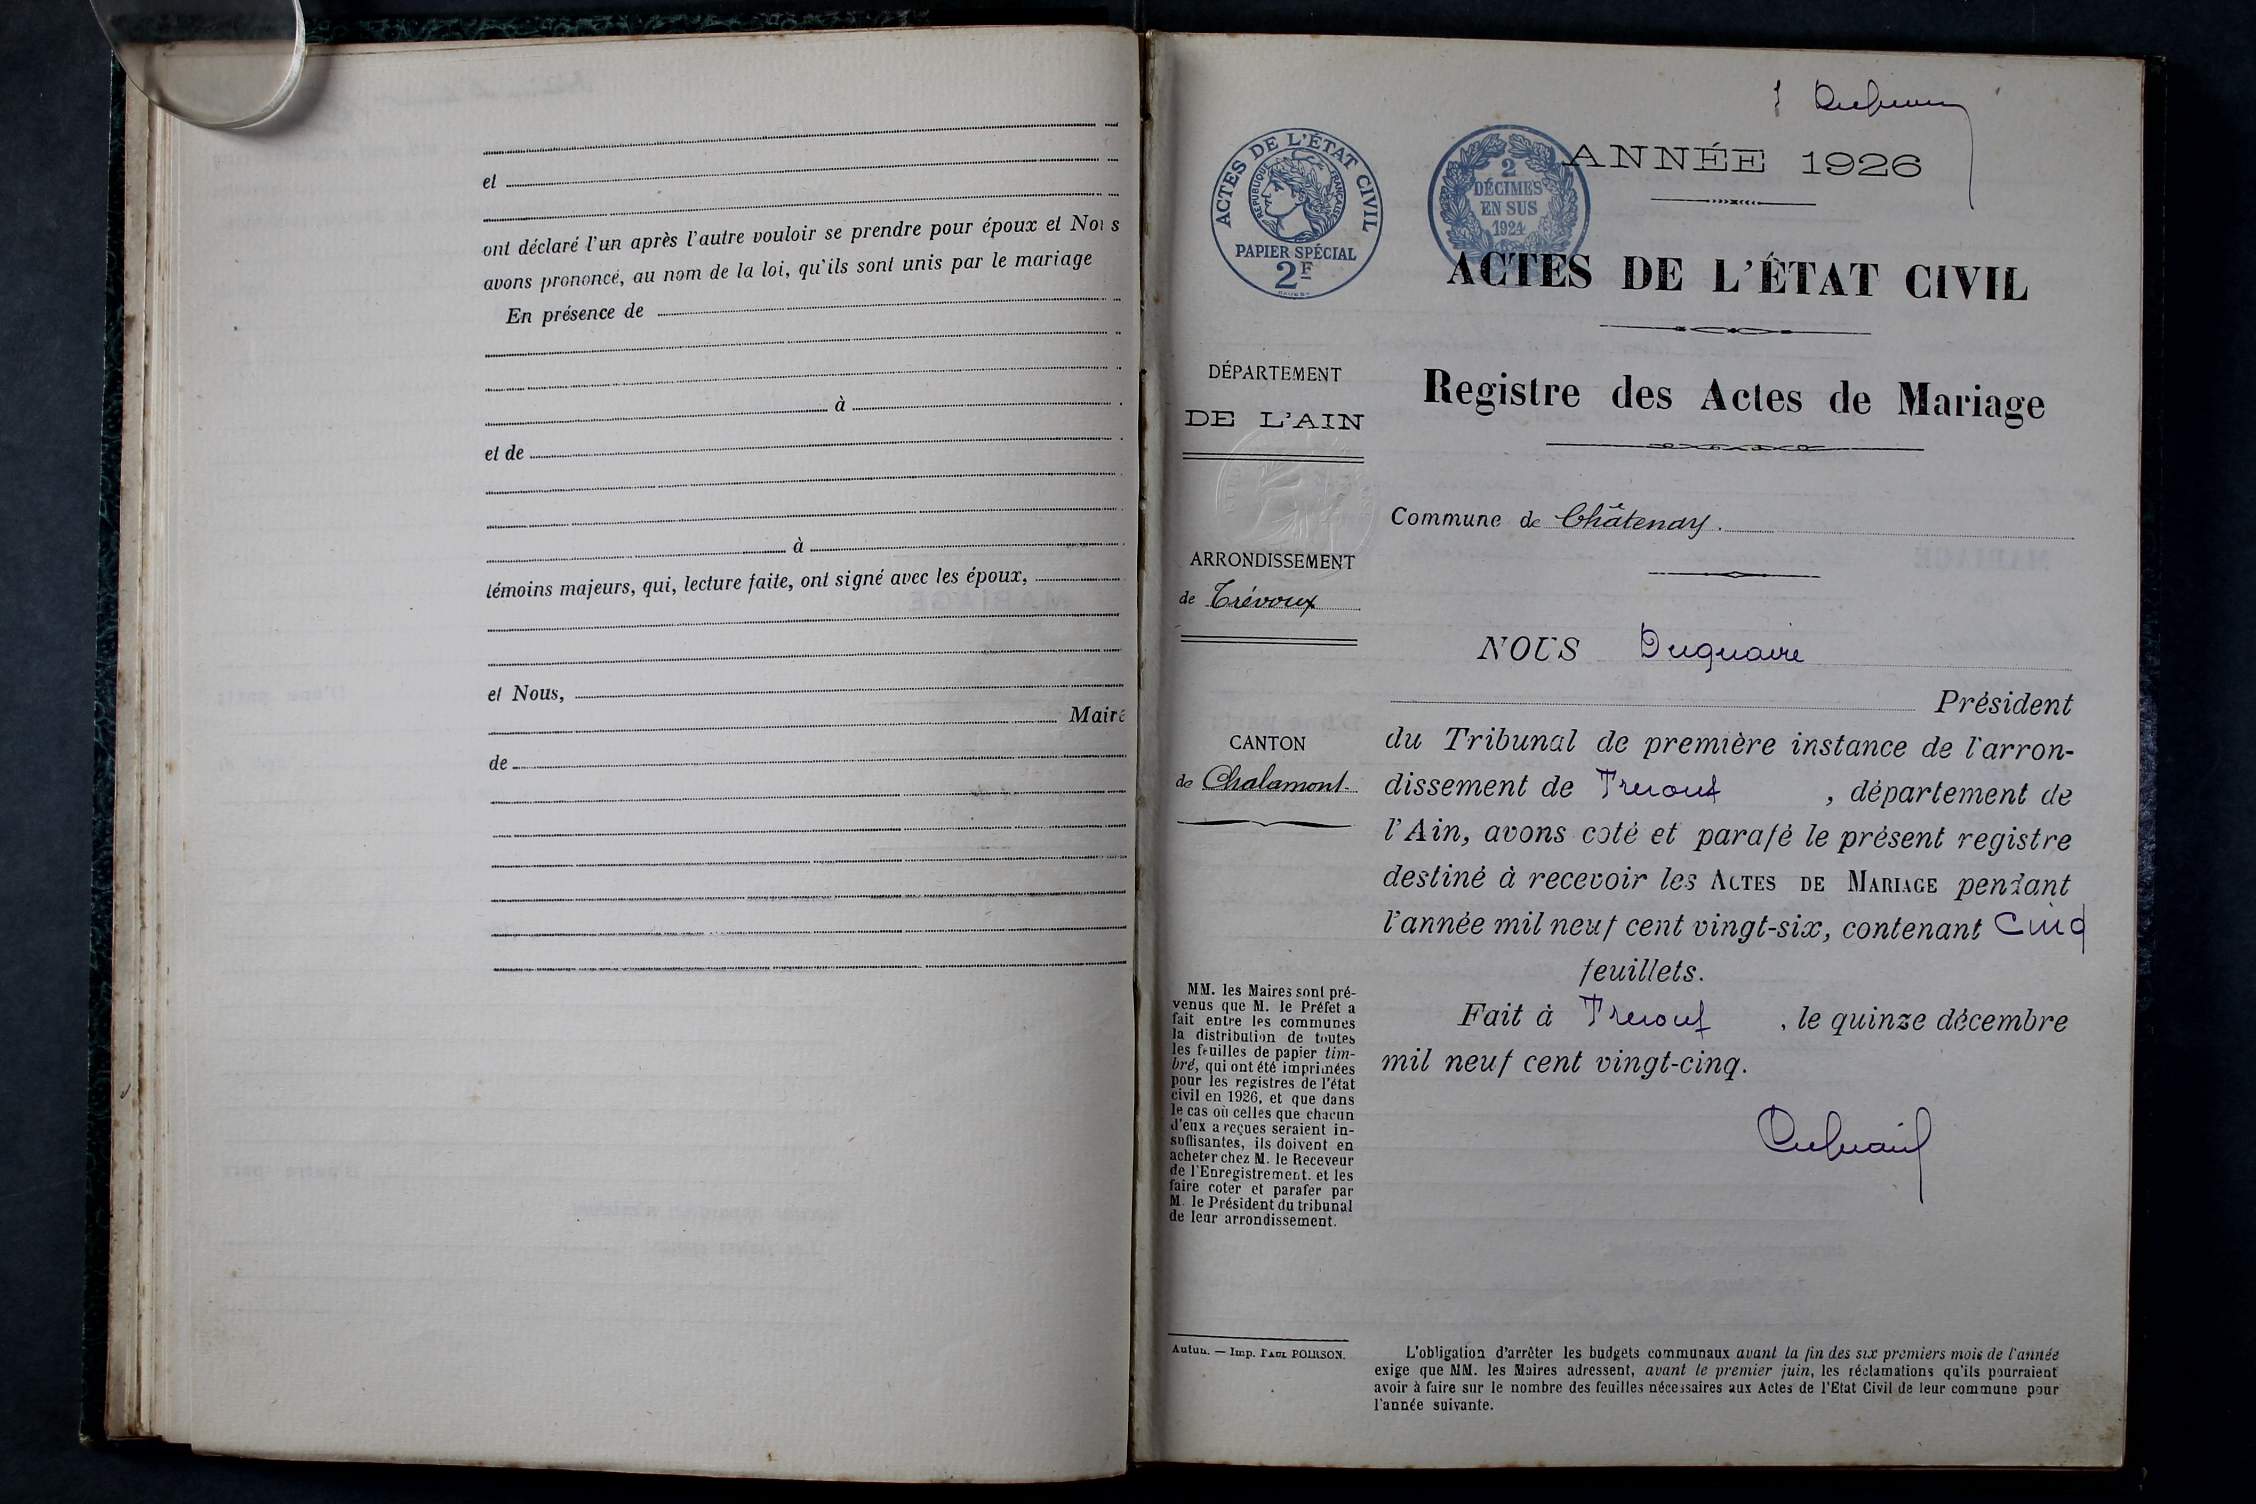 et
ont déclaré l'un après l'autre vouloir se prendre pour époux et Nous
avons prononcé, au nom de la loi, qu'ils sont unis par le mariage
En présence de
à
et de
à
témoins majeurs, qui, lecture faite, ont signé avec les époux,
et Nous,
Maire
de
1
ANNÉE 1926
ACTES DE L'ÉTAT CIVIL
RÉPUBLIQUE FRANÇAISE
PAPIER SPÉCIAL
2F
2
DÉCIMES
EN SUS
1924
ACTES DE L'ÉTAT CIVIL
Registre des Actes de Mariage
DÉPARTEMENT
DE L'AIN
ARRONDISSEMENT
de Trévoux
CANTON
de Chalamont.
MM. les Maires sont pré-
venus que M. le Préfet a
fait entre les communes
la distribution de toutes
les feuilles de papier tim-
bré, qui ont été imprimées
pour les registres de l'état
civil en 1926, et que dans
le cas où celles que chacun
d'eux a reçues seraient in-
suffisantes, ils doivent en
acheter chez M. le Receveur
de l'Enregistrement. et les
faire coter et parafer par
M. le Président du tribunal
de leur arrondissement.
Autun. — Imp. PAUL POIRSON.
Commune de Châtenay.
NOUS Duquaire
Président
du Tribunal de première instance de l'arron-
dissement de Trevoux, département de
l'Ain, avons coté et parafé le présent registre
destiné à recevoir les ACTES DE MARIAGE pendant
l'année mil neuf cent vingt-six, contenant Cinq
feuillets.
Fait à Trevoux, le quinze décembre
mil neuf cent vingt-cinq.
L'obligation d'arrêter les budgets communaux avant la fin des six premiers mois de l'année
exige que MM. les Maires adressent, avant le premier juin, les réclamations qu'ils pourraient
avoir à faire sur le nombre des feuilles nécessaires aux Actes de l'Etat Civil de leur commune pour
l'année suivante.